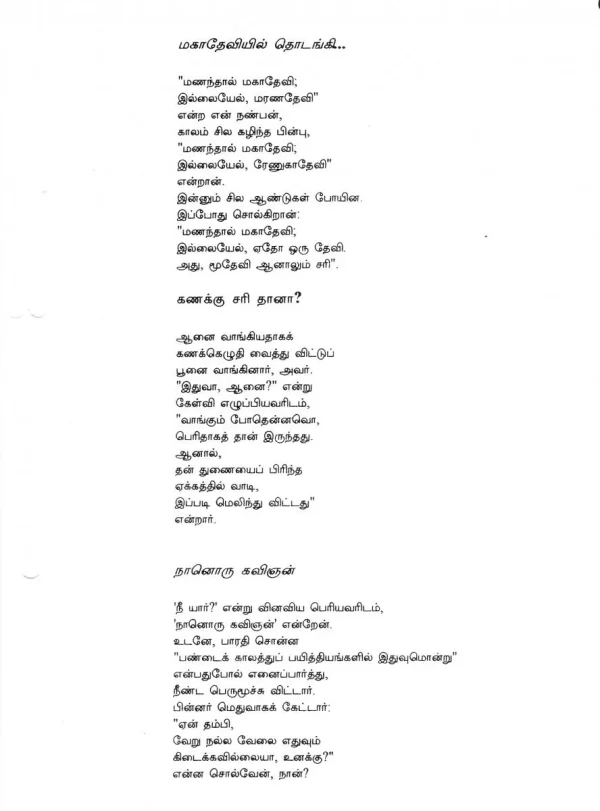 மகாதேவியில் தொடங்கி...
"மணந்தால் மகாதேவி;
இல்லையேல், மரணதேவி"
என்ற என் நண்பன்,
காலம் சில கழிந்த பின்பு,
"மணந்தால் மகாதேவி;
இல்லையேல், ரேணுகாதேவி"
என்றான்.
இன்னும் சில ஆண்டுகள் போயின.
இப்போது சொல்கிறான்:
"மணந்தால் மகாதேவி;
இல்லையேல், ஏதோ ஒரு தேவி.
அது, மூதேவி ஆனாலும் சரி".
கணக்கு சரி தானா?
ஆனை வாங்கியதாகக்
கணக்கெழுதி வைத்து விட்டுப்
பூனை வாங்கினார், அவர்.
"இதுவா, ஆனை?" என்று
கேள்வி எழுப்பியவரிடம்,
"வாங்கும் போதென்னவொ,
பெரிதாகத் தான் இருந்தது.
ஆனால்,
தன் துணையைப் பிரிந்த
ஏக்கத்தில் வாடி,
இப்படி மெலிந்து விட்டது"
என்றார்.
நானொரு கவிஞன்
'நீ யார்?' என்று வினவிய பெரியவரிடம்,
'நானொரு கவிஞன்' என்றேன்.
உடனே, பாரதி சொன்ன
"பண்டைக் காலத்துப் பயித்தியங்களில் இதுவுமொன்று"
என்பதுபோல் எனைப்பார்த்து,
நீண்ட பெருமூச்சு விட்டார்.
பின்னர் மெதுவாகக் கேட்டார்:
"ஏன் தம்பி,
வேறு நல்ல வேலை எதுவும்
கிடைக்கவில்லையா, உனக்கு?"
என்ன சொல்வேன், நான்?